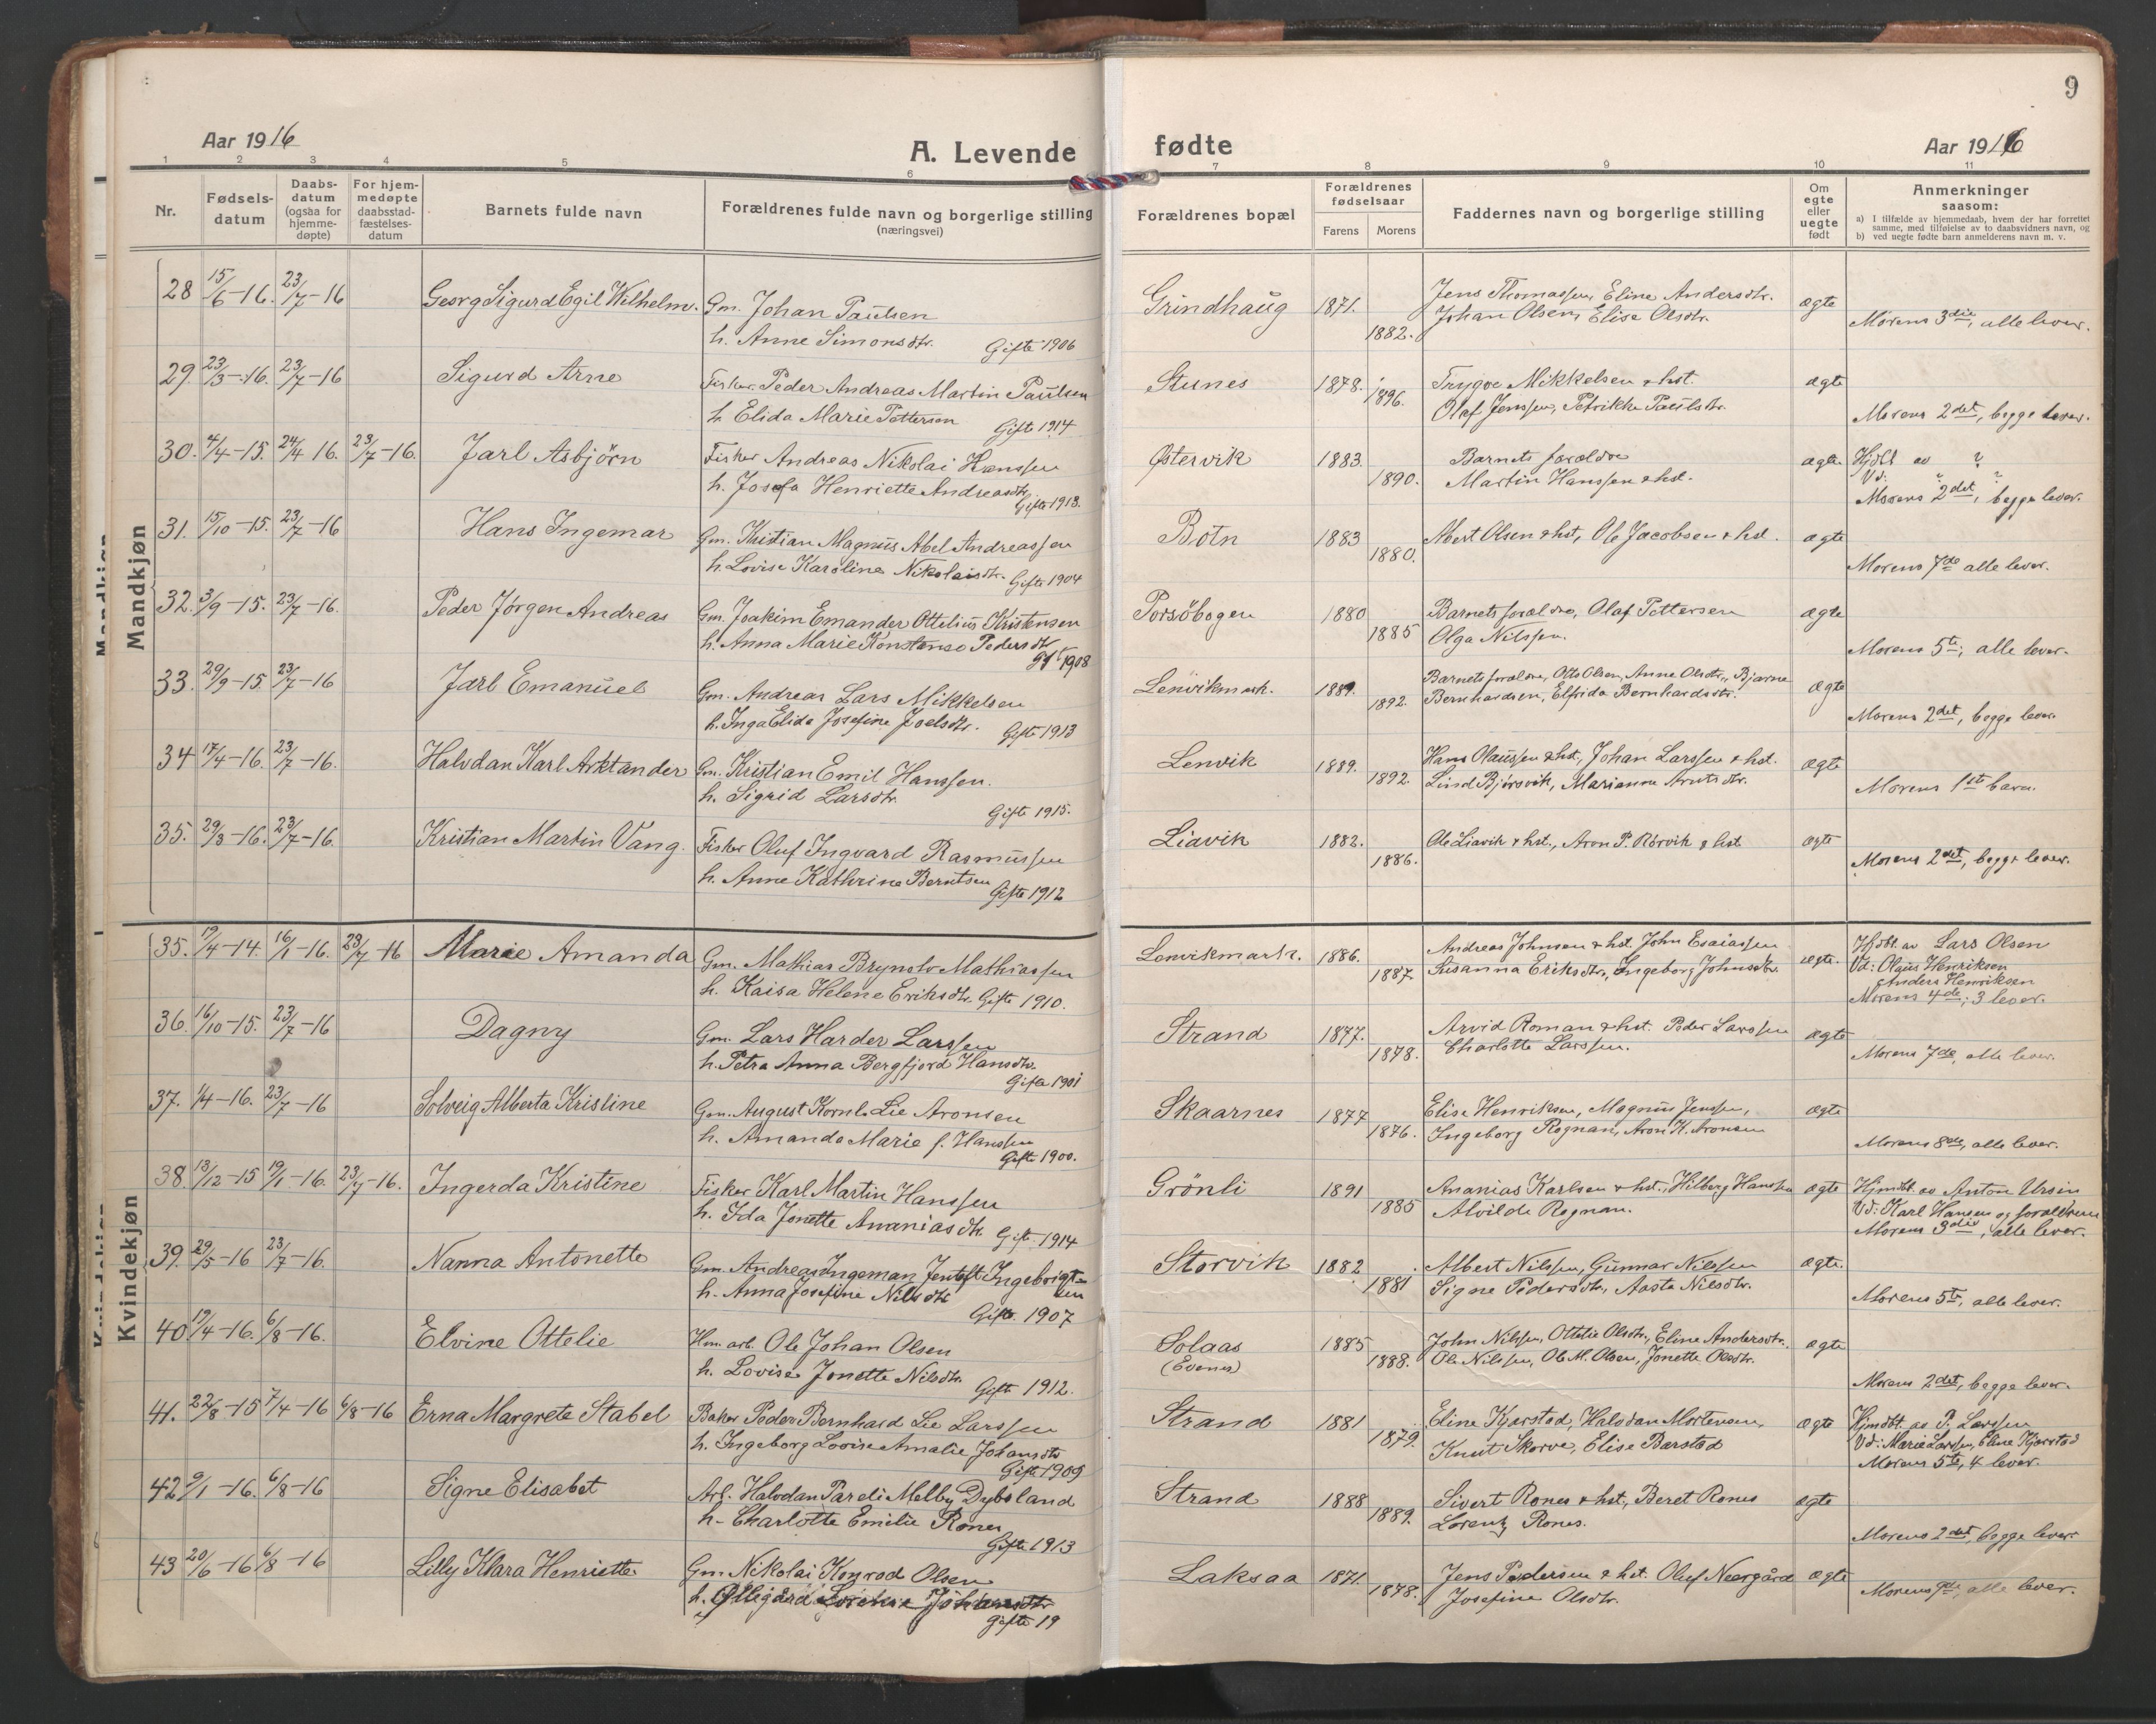 9
Aar 1916
A. Levende
fødte
Aar 1916
1 2 3 4 5 6 7 8 9 10 11
Nr.
Fødsels-
datum
Daabs-
datum
(ogsaa for
hjemme-
døpte)
For hjem-
medøpte
daabsstad-
fæstelses-
datum
Barnets fulde navn
Forældrenes fulde navn og borgerlige stilling
(næringsvei)
Forældrenes bopæl
Forældrenes
fødselsaar
Farens Morens
Faddernes navn og borgerlige stilling
Om
egte
eller
uegte
født
Anmerkninger
saasom:
a) I tilfælde av hjemmedaab, hvem der har forrettet
samme, med tilføielse av to daabsvidners navn, og
b) ved uegte fødte barn anmelderens navn m. v.
Mandkjøn
28 15/6-16. 23/7-16 Georg Sigurd Egil Wilhelm. Gm. Johan Paulsen Grindhaug 1871. Jens Thomassen, Eline Andersdtr. ægte
h. Anne Simonsdtr. 1882. Johan Olsen, Elise Olsdtr. Morens 3die, alle lever.
Gifte 1906
29. 23/3-16. 23/7-16 Sigurd Arne Fisker. Peder Andreas Martin Paulsen Stunes 1878. Trygve Mikkelsen & hst. ægte
h. Elida Marie Pettersen 1896. Olaf Jenssen, Petrikke Paulsdtr. Morens 2det, begge lever.
Gifte 1914
30. 4/4-15. 24/4 16. 23/7-16. Jarl Asbjörn Fisker Andreas Nikolai Hanssen Østervik 1883. Barnets forældre ægte. Hjdbt av ?
h. Josefa Henriette Andreasdtr. 1890. Martin Hanssen & hst. Vd: " ?
Gifte 1913. Morens 2det, begge lever.
31. 15/10-15. 23/7-16 Hans Ingemar Gm. Kristian Magnus Abel Andreassen Botn 1883 Abert Olsen & hst, Ole Jacobsen & hst. ægte
h. Lovise Karoline Nikolaisdtr. Gifte 1904 1880. Morens 7de alle lever.
32. 3/9-15. 23/7-16. Peder Jörgen Andreas Gm. Joakim Emander Ottelius Kristensen Porsöbogen 1880 Barnets forældre, Olaf Pettersen ægte
h. Anna Marie Konstanse Pedersdtr 1885 Olga Nilssen. Morens 5te, alle lever.
Gft 1908
33. 29/9-15. 23/7-16 Jarl Emanuel Gm. Andreas Lars Mikkelsen Lenvikmark. 1889. Barnets forældre, Otto Olsen, Anne Olsdtr., Bjarne ægte
h. Inga Elida Josefine Joelsdtr. Gifte 1913 1892. Bernhardsen, Elfrida Bernhardsdtr. Morens 2det, begge lever.
34 17/4-16. 23/7-16. Halvdan Karl Arktander Gm. Kristian Emil Hanssen. Lenvik 1889. Hans Olaussen & hst, Johan Larssen & hst. ægte
h. Sigrid Larsdtr. 1892. Lind Bjørsvik, Marianne Arntsdtr. Morens 1ste barn.
Gifte 1915.
35. 29/3-16. 23/7-16. Kristian Martin Vang. Fisker Oluf Ingvard Rasmussen Liavik 1882. Ole Liavik & hst., Aron P. Rörvik & hst ægte
h. Anne Kathrine Berntsen 1886. Morens 2det, begge lever.
Gifte 1912
Kvindekjøn
35. 19/4-14. 16/1-16. 23/7-16 Marie Amanda Gm. Mathias Brynolv Mathiassen Lenvikmark. 1886. Andreas Johnsen & hst. John Esaiassen ægte. Hjdbt. av Lars Olsen
h. Kaisa Helene Eriksdtr. Gifte 1910. 1887. Susanna Eriksdtr., Ingeborg Johnsdtr. Vd: Olaus Henriksen
Anders Henriksen
Morens 4de, 3 lever.
36. 16/10-15. 23/7-16 Dagny Gm. Lars Harder Larssen Strand 1877. Arvid Roman & hst. Peder Larssen ægte
h. Petra Anna Bergfjord Hansdtr. 1878. Charlotte Larssen. Morens 7de, alle lever.
Gifte 1901
37. 1/4-16. 23/7-16 Solveig Alberta Kristine Gm. August Kornl. Lie Aronsen Skaarnes 1877 Elise Henriksen, Magnus Jenssen, ægte
h. Amanda Marie f. Hanssen 1876. Ingeborg Rognan, Aron K. Aronsen Morens 8de, alle lever.
Gifte 1900.
38. 13/12-15 19/1-16. 23/7-16. Ingerda Kristine Fisker Karl Martin Hanssen Grönli 1891 Ananias Karlsen & hst., Hilberg Hanssen ægte Hjmdbt. av Anton Ursin
h. Ida Jonette Ananiasdtr. Gift. 1914 1885 Alvilde Rognan. Vd: Karl Hansen og forældrene
Morens 3die, alle lever.
39. 29/5-16 23/7-16. Nanna Antonette Gm. Andreas Ingeman Jentoft Ingebrigtsen Storvik 1882 Albert Nilssen, Gunnar Nilssen ægte.
h. Anna Josefine Nilsdtr 1881 Signe Pedersdtr, Aasta Nilsdtr. Morens 5te, alle lever.
Gifte. 1907
40. 19/4-16. 6/8-16. Elvine Ottelie Hm. arb. Ole Johan Olsen Solaas 1885 John Nilssen, Ottelie Olsdtr., Eline Andersdtr. ægte
h. Lovise Jonette Nilsdtr. (Evenes) 1888. Ole Nilssen, Ole M. Olsen, Jonette Olsdtr.
Gifte 1912. Morens 2det, begge lever.
41. 22/8-15 7/4-16 6/8-16 Erna Margrete Stabel Baker Peder Bernhard Lie Larssen Strand 1881 Eline Kjærstad, Halvdan Mortensen, ægte Hjmdbt. av P. Larssen
h. Ingeborg Lovise Amalie Johansdtr 1879. Knut Skorve, Elise Barstad Vd: Marie Larssen, Eline Kjærstad
Gift. 1909 Morens 5te, 4 lever.
42 9/1-16. 6/8-16 Signe Elisabet Arb. Halvdan Pareli Melby Dybsland Strand 1888 Sivert Rones & hst., Beret Rones ægte
h. Charlotte Emilie Rones 1889. Lorentz Rones. Morens 2det, begge lever.
Gifte 1913
43 20/6-16 6/8-16 Lilly Klara Henriette Gm. Nikolai Konrod Olsen Laksaa 1871. Jens Pedersen & hst. Oluf Neergård ægte
h. Johansdtr 1878. Josefine Olsdtr. Morens 9de, alle lever.
Gifte 19